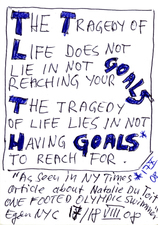 THE TRAGEDY OF
LIFE DOES NOT
LIE IN NOT
REACHING YOUR GOALS
THE TRAGEDY
OF LIFE LIES IN NOT
HAVING GOALS*
TO REACH FOR.
*As seen in NY Times
article about Natalie Du Toit
ONE FOOTED OLYMPIC SWIMMER
NYC 17/18 VIII 08